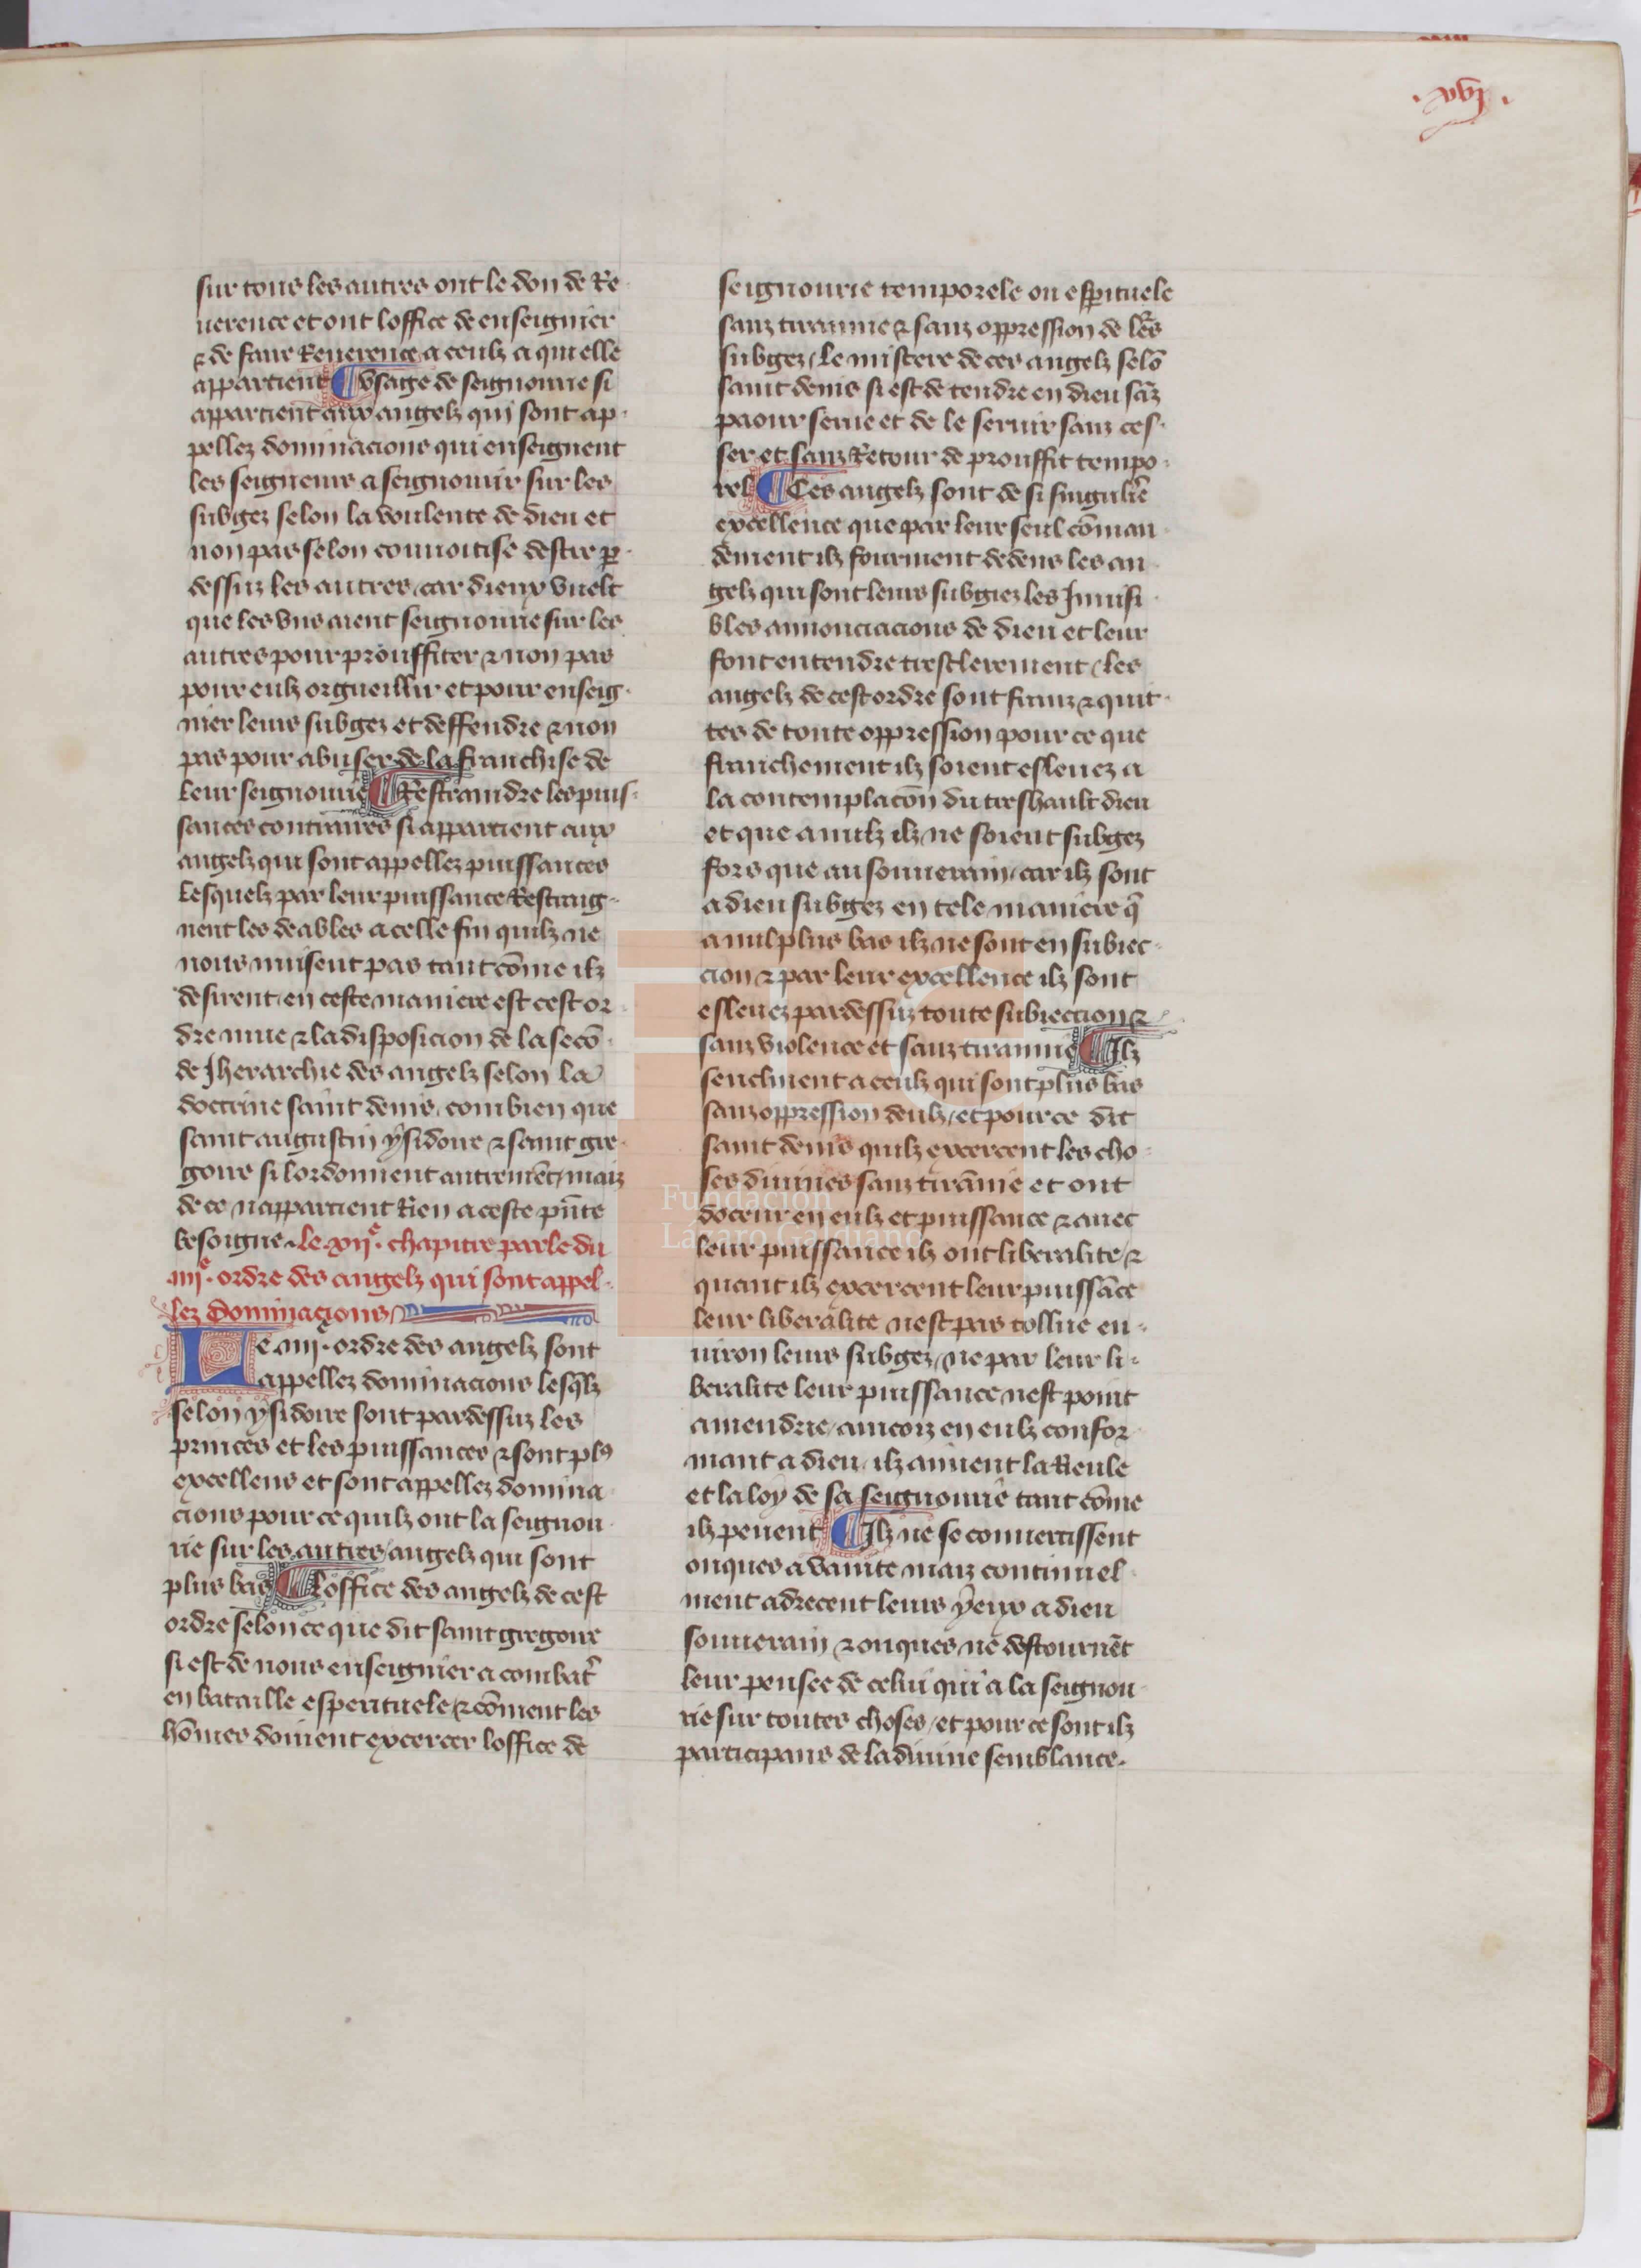 .xvi.
sur tous les autres ont le don de Re
uerence et ont loffice de enseignier
⁊ de faire Reuerence a ceulx a qui elle
appartient ¶ Vsage de seignourie si
appartient aux angelz qui sont ap-
pellez dominacions qui enseignent
les seigneurs a seignourir sur les
subgez selon la voulente de dieu et
non pas selon conuoitise destre p̲
dessuz les autres / car dieux vuelt
que les vns aient seignourie sur les
autres pour prouffiter ⁊ non pas
pour eulz orgueillir et pour enseig-
nier leurs subgez et deffendre ⁊ non
pas pour abuser de la franchise de
leur seignourie ¶ Restraindre les puis-
sances contraires si appartient aux
angelz qui sont appellez puissances
lesquelz par leur puissance Restraig-
nent les deables a celle fin quilz ne
nous nuisent pas tant cõme ilz
desirent / en ceste maniere est cest or
dre mue ⁊ la disposicion de la secõ
de Jherarchie des angelz selon la
doctrine saint denis. combien que
saint augustin ysidore ⁊ saint gre-
goire si lordonnent autremẽt / maiz
de ce nappartient Rien a ceste pñte
besoigne. le .xij.e chapitre parle du
.iiij.e ordre des angelz qui sont appel-
lez dominacions /
Le .iiij. ordre des angelz sont
appellez dominacions lesq̃lz
selon ysidore sont pardessuz les
princes et les puissances ⁊ sont plꝰ
excellens et sont appellez domina
cions pour ce quilz ont la seignou
rie sur les autres / angelz qui sont
plus bas ¶ Loffice des angelz de cest
ordre selon ce que dit saint gregoire
si est de nous enseignier a combat̃
en bataille esperituele ⁊ cõment les
hõmes doiuent excercer loffice de
seignourie temporele ou esp̲ituele
sanz tirannie ⁊ sanz oppression de lẽs
subgez / Le mistere de ces angelz selõ
saint denis si est de tendre en dieu sãz
paour serue et de le seruir sanz ces-
ser et sanz Retour de prouffit tempo-
rel ¶ Ces angelz sont de si singulie᷑
excellence que par leur seul cõman
dement ilz fourment dedens les an
gelz qui sont leurs subgiez les Jnuisi
bles annonciacions de dieu et leur
font entendre tresclerement / les
angelz de cest ordre sont franz ⁊ quit-
tes de toute oppression pour ce que
franchement ilz soient esleuez a
la contemplacõn du treshault dieu
et que a nulz ilz ne soient subgez
fors que au souuerain / car ilz sont
a dieu subgez en tele maniere q̃
a nul plus bas ilz ne sont en subiec-
cion ⁊ par leur excellence ilz sont
esleuez pardessuz toute subieccion ⁊
sanz violence et sanz tirannie ¶ Ilz
seuelment a ceulz qui sont plus bas
sanz oppression deulz / et pour ce dit
saint denis quilz excercent les cho-
ses diuines sanz tirãnie et ont
doceur en eulz et puissance ⁊ auec
leur puissance ilz ont liberalite / ⁊
quant ilz excercent leur puissãce
leur liberalite nest pas tollue en-
uiron leurs subgez / ne par leur li-
beralite leur puissance nest point
amendrie / aincois en eulz confor
mant a dieu / ilz aiment la Reule
et la loy de sa seignourie tant cõme
ilz peuent ¶ Ilz ne se conuertissent
onques a vanite maiz continuel
ment adrecent leurs yeux a dieu
souuerain ⁊ onques ne destournẽt
leur pensee de celui qui a la seignou
rie sur toutes choses / et pour ce sont ilz
participans de la diuine semblance.
Fundación
Lázaro Galdiano